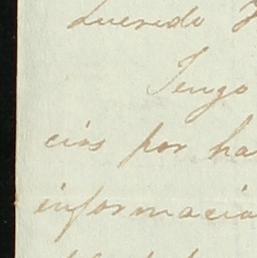 Querido
Tengo
cias por ha
informacio